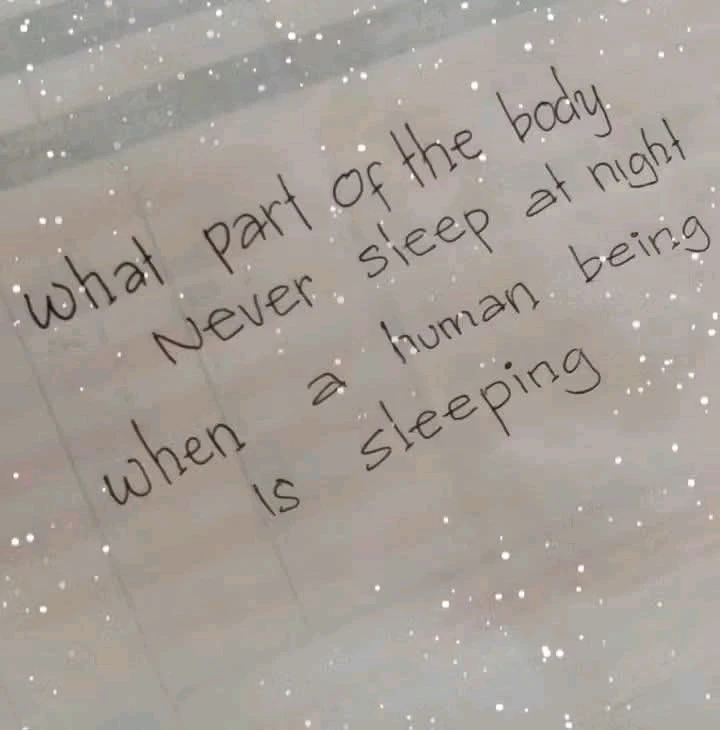 What part of the body
Never sleep at night
when a human being
is sleeping